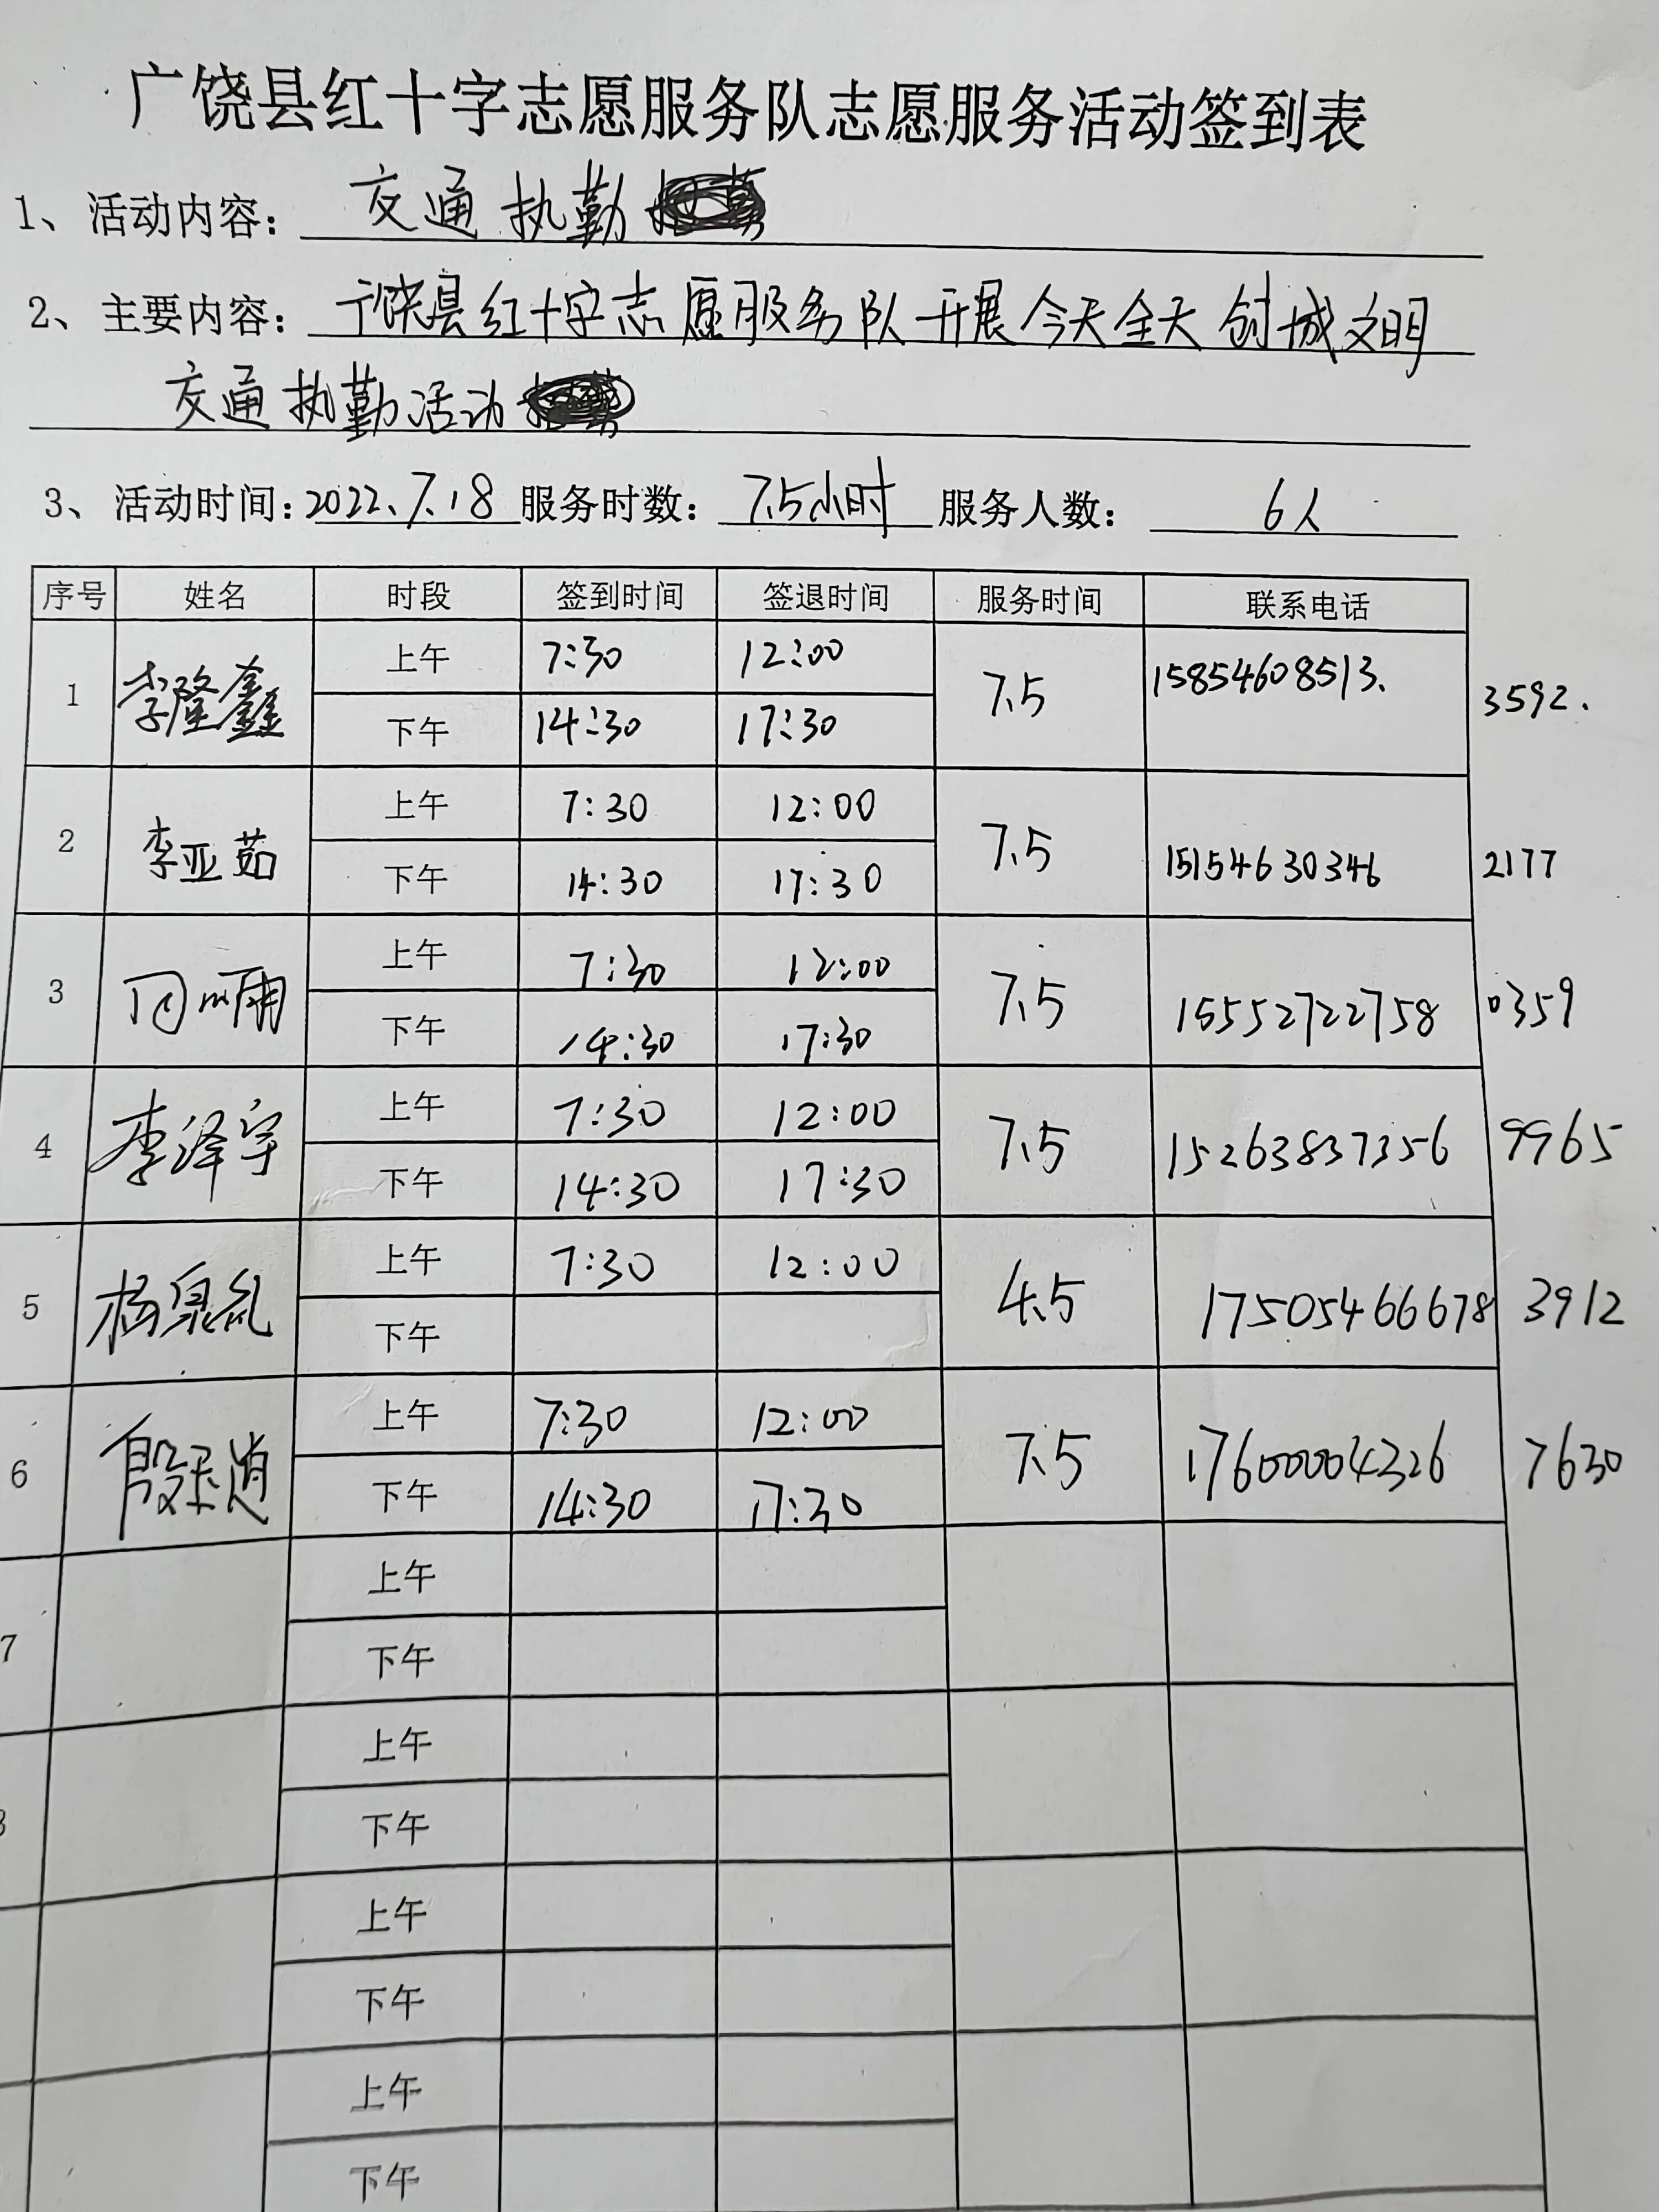 广饶县红十字志愿服务队志愿服务活动签到表
1、活动内容：交通执勤
2、主要内容：广饶县红十字志愿服务队开展今天全天创城文明
交通执勤活动
3、活动时间：2022.7.18 服务时数：7.5小时 服务人数：6人
序号 姓名 时段 签到时间 签退时间 服务时间 联系电话
1 李隆鑫 上午 7:30 12:00 7.5 15854608513. 3592.
下午 14:30 17:30
2 李亚茹 上午 7:30 12:00 7.5 15154630346 2177
下午 14:30 17:30
3 上午 7:30 12:00 7.5 15552722758 0359
下午 14:30 17:30
4 李泽宇 上午 7:30 12:00 7.5 15263837356 9965
下午 14:30 17:30
5 杨泉 上午 7:30 12:00 4.5 17505466678 3912
下午
6 殷 上午 7:30 12:00 7.5 17600004326 7630
下午 14:30 17:30
7 上午
下午
上午
下午
上午
下午
上午
下午